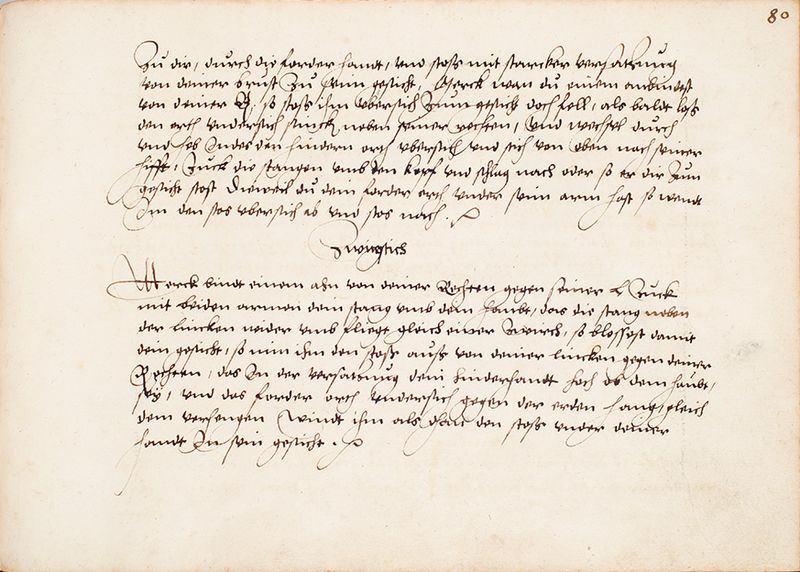 80
Zu dir, durch die forder handt, und stoß mit starcker versatzung
von deiner brust zu seim gesicht, Merck wan du einem anbindest
von deiner R, so stoß ihm ubersich zum gesicht doch fell, als baldt laß
den orth undersich sincken neben seiner rechten, und wechsel durch
und heb Indes den hindern orth ubersich und stich von oben nach seiner
hifft, Zuck die stangen umb den kopf und schlag nach oder so er dir zum
gesicht stost Dieweil du dem forder orth under seim arm hast so wendt
Im den stos ubersich ab und stos nach.
Zwirgstich
Merck bindt einem ahn von deiner Rechten gegen seiner L Zuck
mit beiden armen dein stang umb dem haubt, das die stang neben
der lincken wider umb fliege gleich einer zwirch, so blossest damit
dein gesicht, so nim ihm den stoß auß von deiner lincken gegen deiner
Rechten, das In der versatzung dein hinderhandt hoch ob dem haubt,
sey, und das forder orth undersich gegen der erden hang, gleich
dem verhengen Windt ihm als dhan den stoß under deiner
handt In sein gesicht.